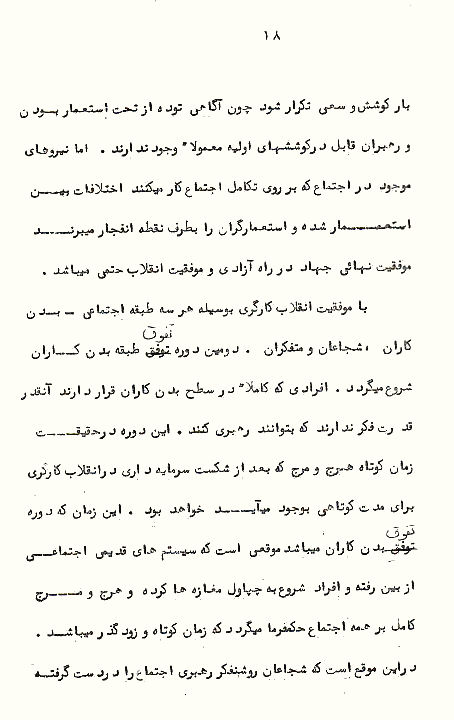 ۱۸
بار کوشش و سعی تکرار شود چون آگاهی توده از تحت استعمار بودن
و رهبران قابل درکوششهای اولیه معمولاً وجود ندارند . اما نیروهای
موجود در اجتماع که بر روی تکامل اجتماع کار میکنند اختلافات بین
استعمار شده و استعمارگران را بطرف نقطه انفجار میبرند
موفقیت نهائی جهاد در راه آزادی و موفقیت انقلاب حتمی میباشد .
با موفقیت انقلاب کارگری بوسیله هر سه طبقه اجتماعی ـ بدن
کاران ، شجاعان و متفکران . دومین دوره توفق تفوق طبقه بدن کاران
شروع میگردد . افرادی که کاملاً در سطح بدن کاران قرار دارند آنقدر
قدرت فکر ندارند که بتوانند رهبری کنند . این دوره درحقیقت
زمان کوتاه هرج و مرج که بعد از شکست سرمایه داری درانقلاب کارگری
برای مدت کوتاهی بوجود میآید خواهد بود . این زمان که دوره
توفق تفوق بدن کاران میباشد موقعی است که سیستم های قدیمی اجتماعی
از بین رفته و افراد شروع به چپاول مغازه ها کرده و هرج و مرج
کامل بر همه اجتماع حکمفرما میگردد که زمان کوتاه و زود گذر میباشد .
دراین موقع است که شجاعان روشنفکر رهبری اجتماع را دردست گرفته